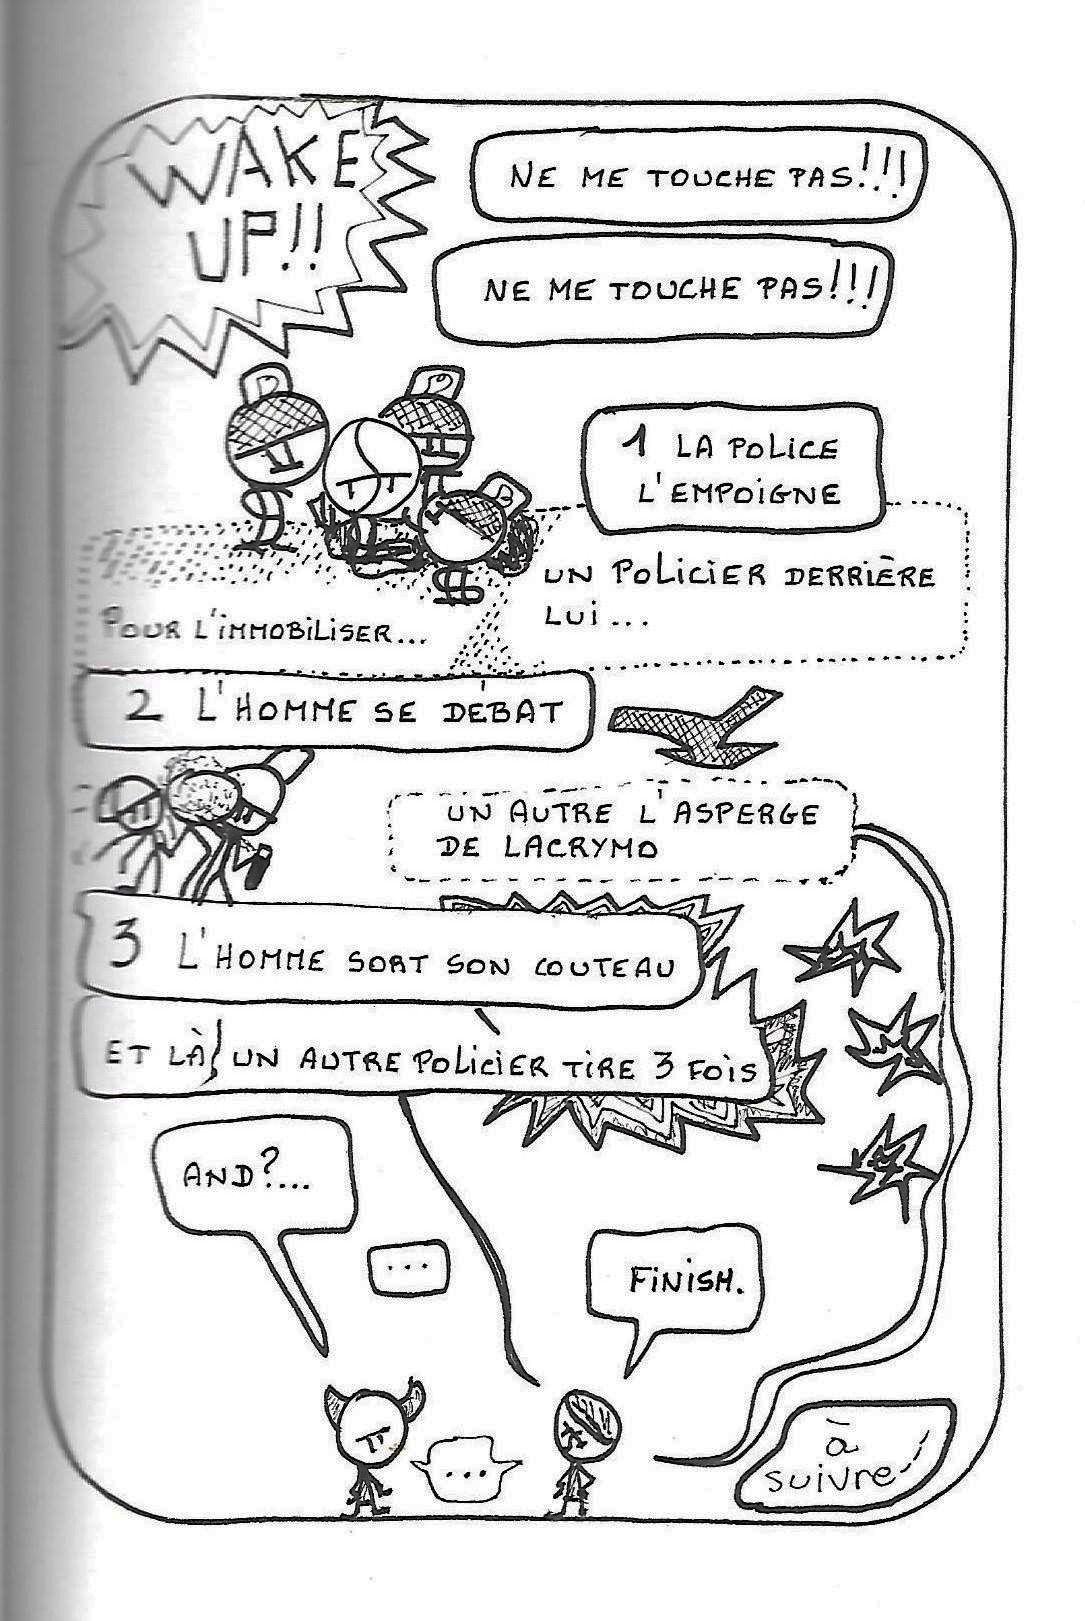 WAKE
UP!!
NE ME TOUCHE PAS!!!
NE ME TOUCHE PAS!!!
1 LA POLICE
L'EMPOIGNE
UN POLICIER DERRIÈRE
LUI...
POUR L'IMMOBILISER...
2 L'HOMME SE DÉBAT
UN AUTRE L'ASPERGE
DE LACRYMO
3 L'HOMME SORT SON COUTEAU
ET LÀ, UN AUTRE POLICIER TIRE 3 FOIS
AND?...
...
FINISH.
...
à
suivre